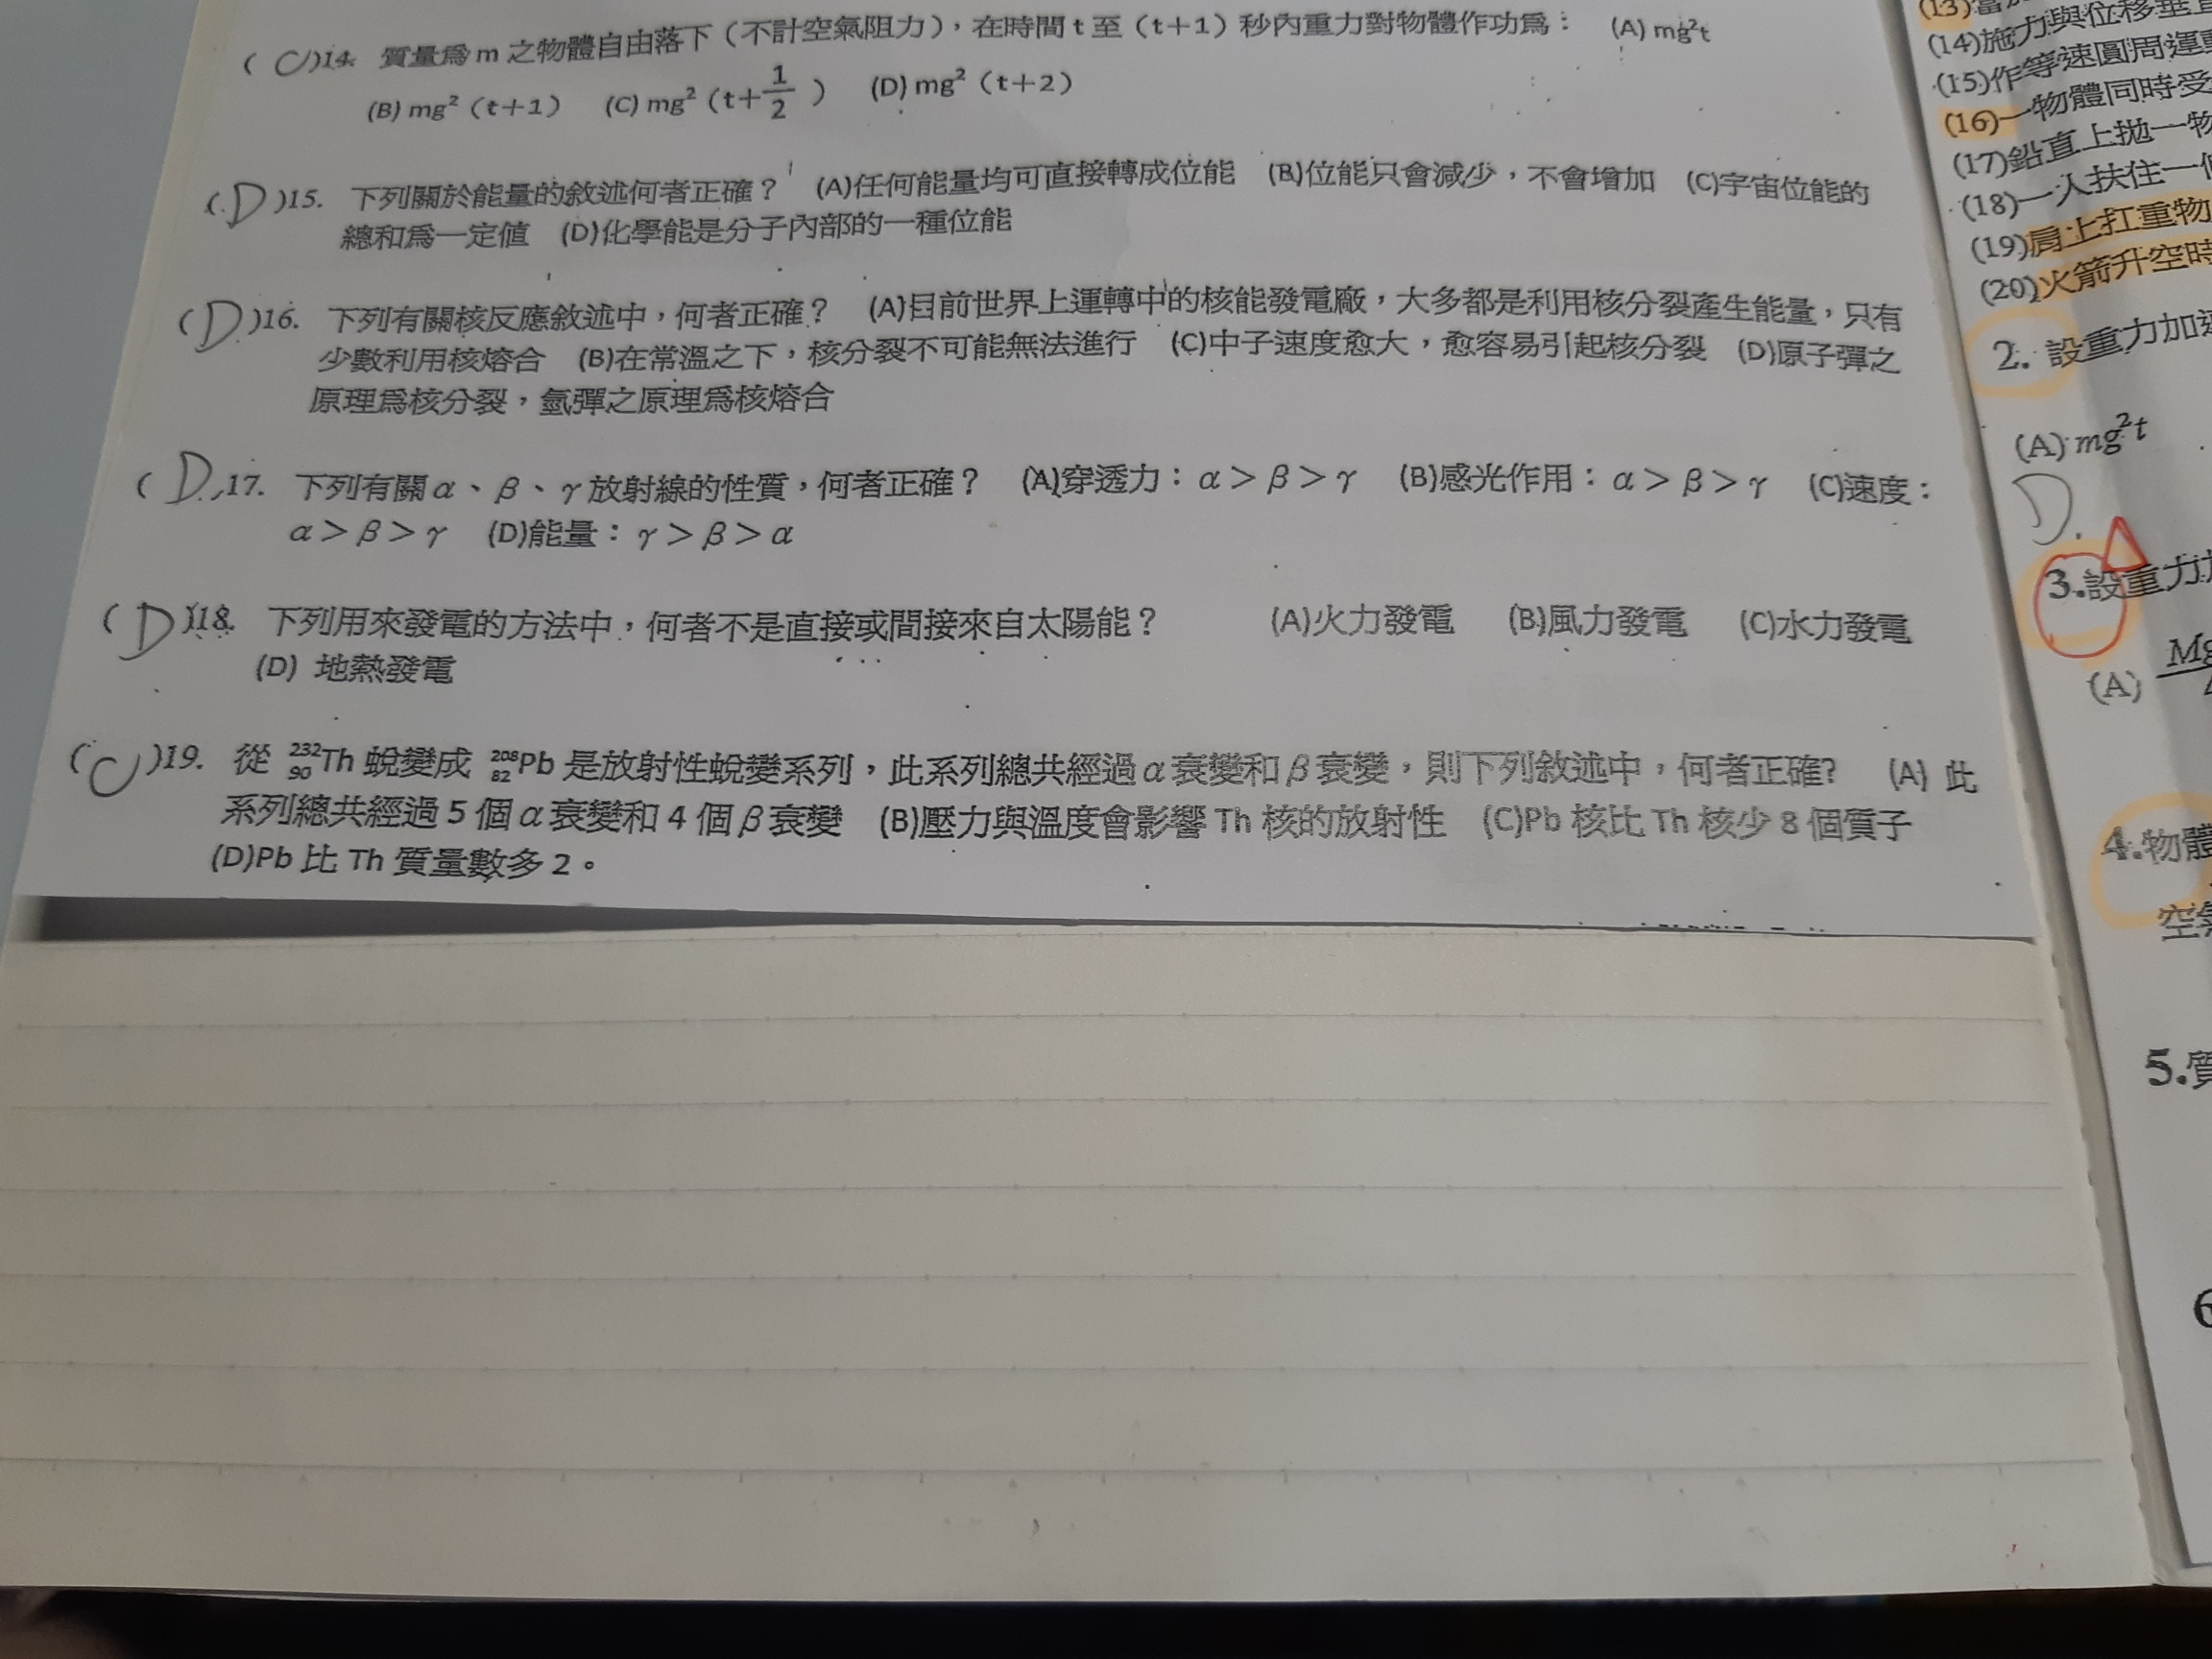 ( C )14. 質量為 m 之物體自由落下（不計空氣阻力），在時間 t 至（t+1）秒內重力對物體作功為： (A) mg²t
(B) mg²（t+1） (C) mg²（t+1/2） (D) mg²（t+2）
( D )15. 下列關於能量的敘述何者正確？ (A)任何能量均可直接轉成位能 (B)位能只會減少，不會增加 (C)宇宙位能的
總和為一定值 (D)化學能是分子內部的一種位能
( D )16. 下列有關核反應敘述中，何者正確？ (A)目前世界上運轉中的核能發電廠，大多都是利用核分裂產生能量，只有
少數利用核熔合 (B)在常溫之下，核分裂不可能無法進行 (C)中子速度愈大，愈容易引起核分裂 (D)原子彈之
原理為核分裂，氫彈之原理為核熔合
( D )17. 下列有關 α、β、γ 放射線的性質，何者正確？ (A)穿透力：α＞β＞γ (B)感光作用：α＞β＞γ (C)速度：
α＞β＞γ (D)能量：γ＞β＞α
( D )18. 下列用來發電的方法中，何者不是直接或間接來自太陽能？ (A)火力發電 (B)風力發電 (C)水力發電
(D) 地熱發電
( C )19. 從 ²³²₉₀Th 蛻變成 ²⁰⁸₈₂Pb 是放射性蛻變系列，此系列總共經過 α 衰變和 β 衰變，則下列敘述中，何者正確? (A) 此
系列總共經過 5 個 α 衰變和 4 個 β 衰變 (B)壓力與溫度會影響 Th 核的放射性 (C)Pb 核比 Th 核少 8 個質子
(D)Pb 比 Th 質量數多 2。
(13)當
(14)施力與位移垂直
(15)作等速圓周運動
(16)一物體同時受
(17)鉛直上拋一物
(18)一人扶住一個
(19)肩上扛重物
(20)火箭升空時
2. 設重力加速
(A) mg²t
D
3.設重力加
(A) Mg
4.物體
空氣
5.質
6